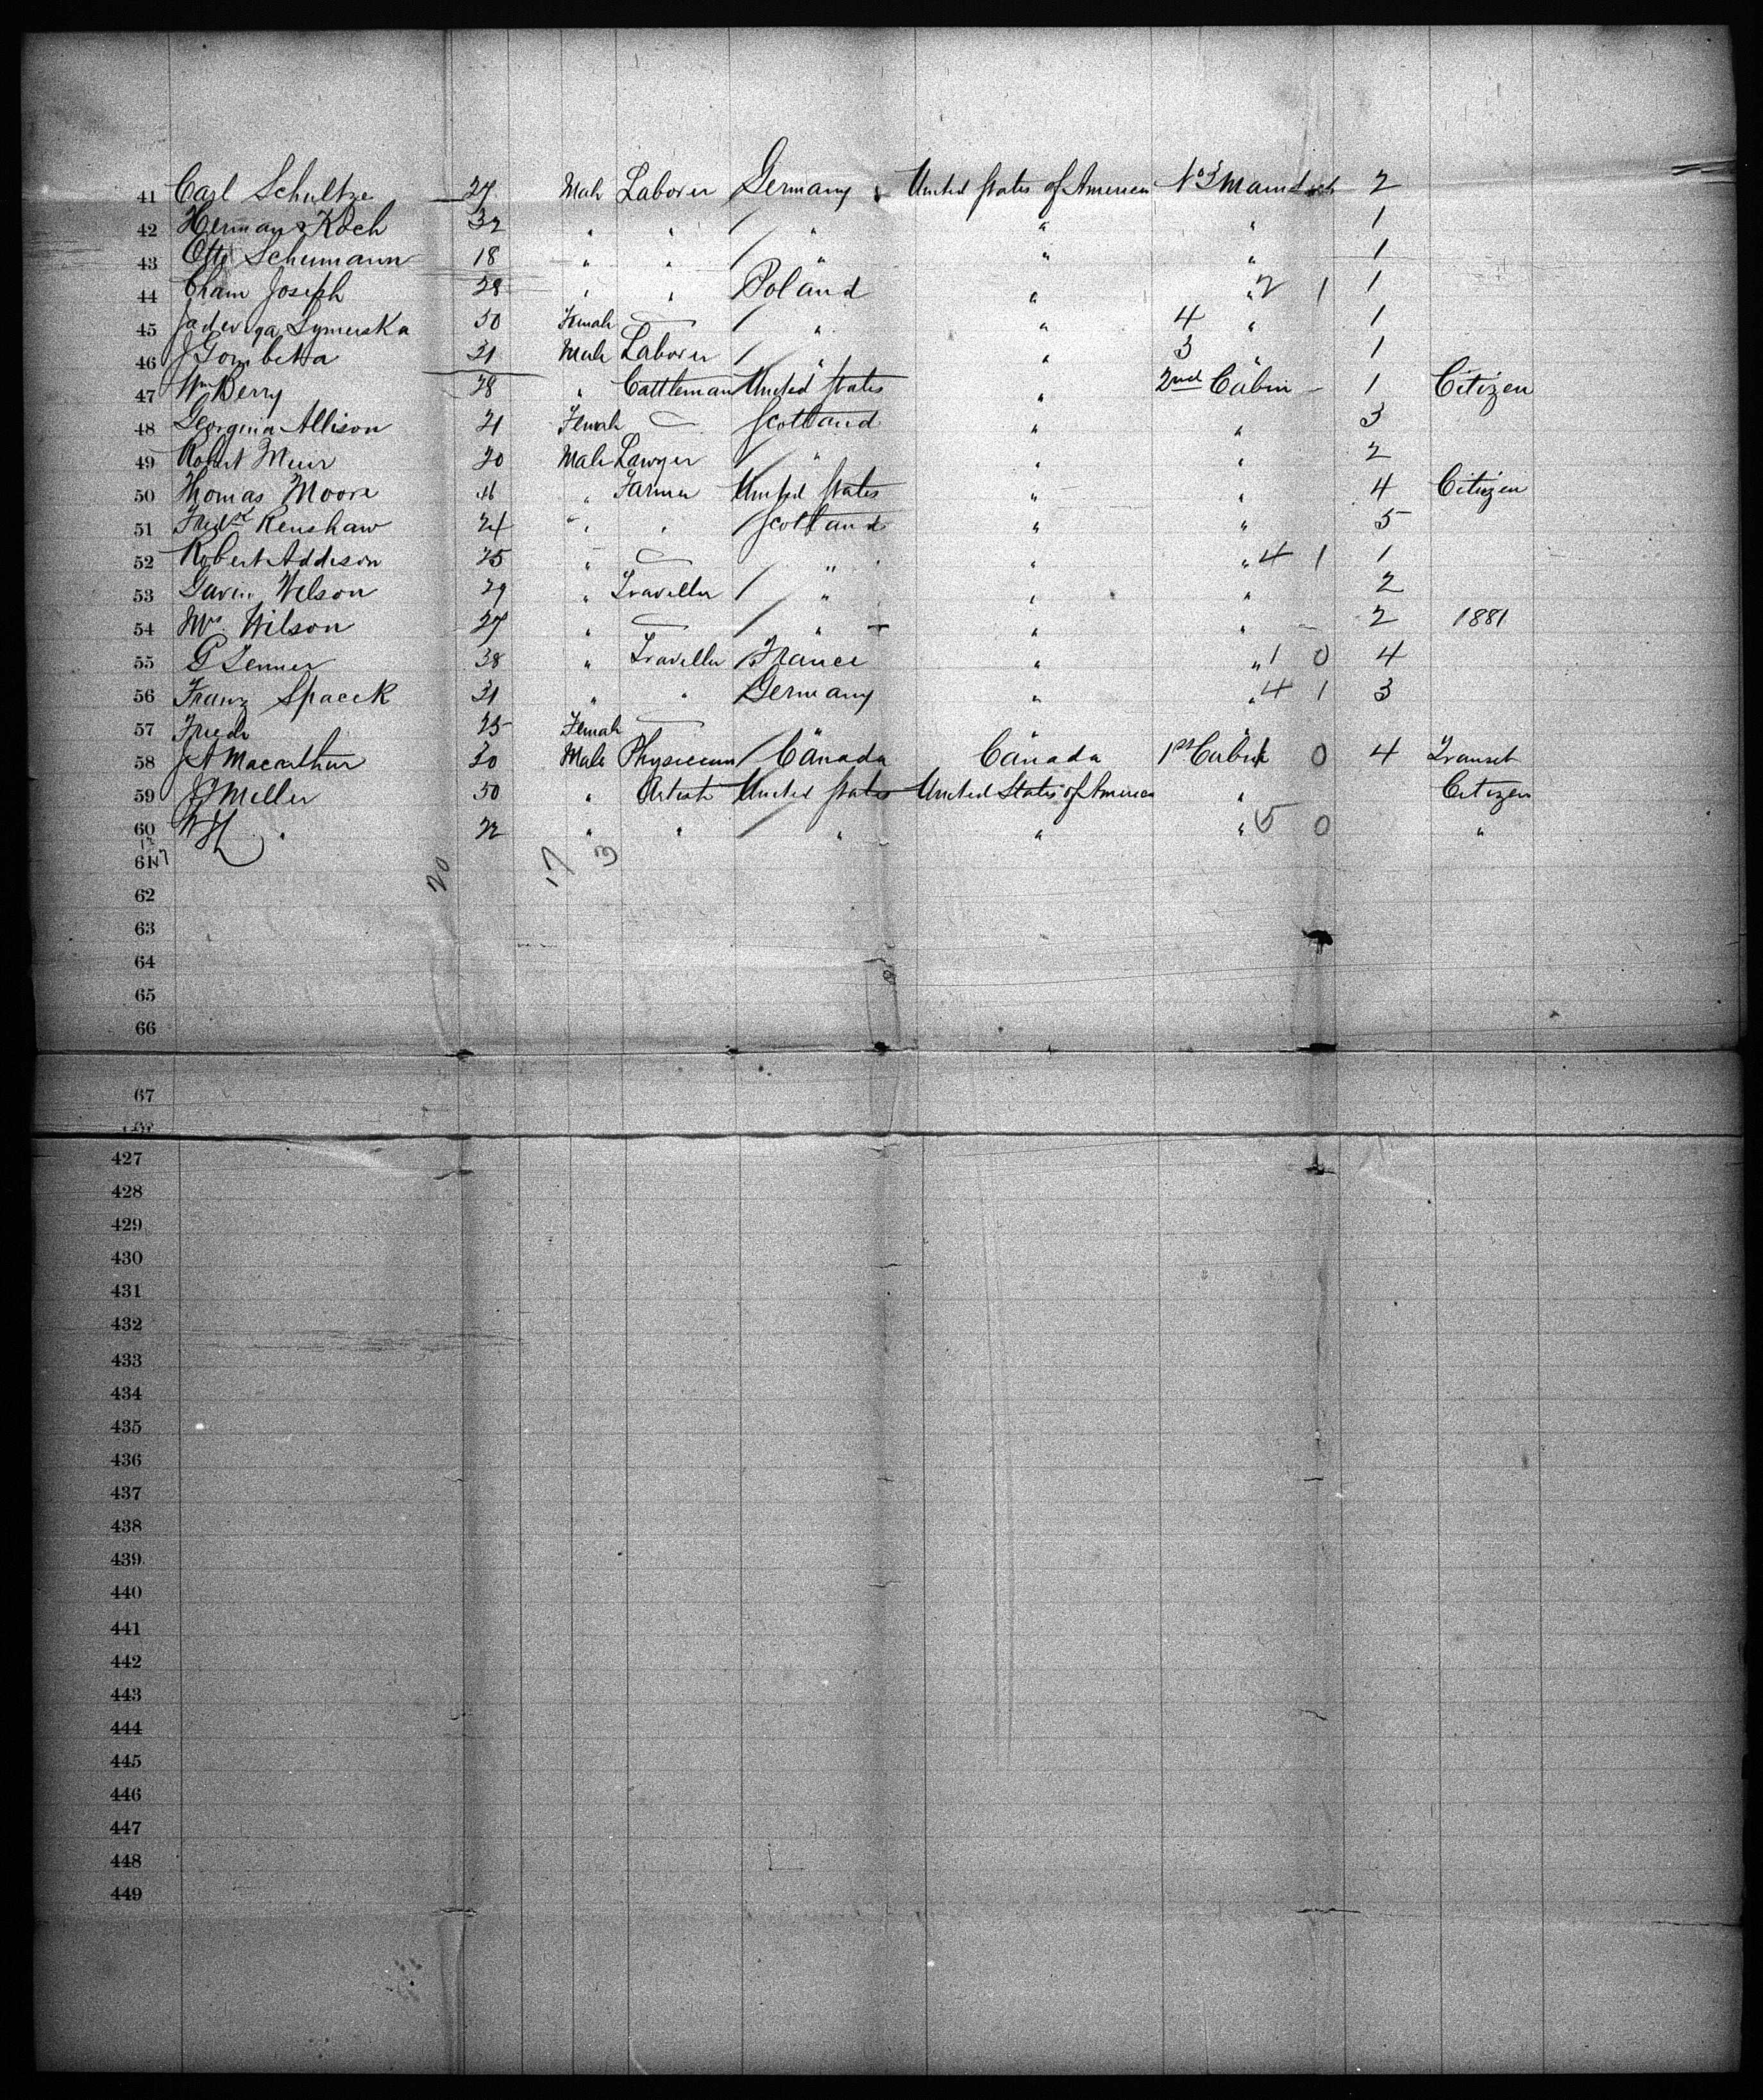 41 Carl Schultze 27 Male Laborer Germany United States of America No 3 Main Deck 2
42 Herman Koch 32 " " " " " 1
43 Otto Schumann 18 " " " " " 1
44 Cham Joseph 28 " " Poland " " 2 1 1
45 Jadwiga Symerska 50 Female — " " 4 " 1
46 J Gombetta 31 Male Laborer " " 3 " 1
47 Wm Berry 28 " Cattleman United States " 2nd Cabin – 1 Citizen
48 Georgina Allison 21 Female — Scotland " " 3
49 Robert Muir 20 Male Lawyer " " " 2
50 Thomas Moore " Farmer United States " " 4 Citizen
51 Fredk Renshaw 24 " " Scotland " " 5
52 Robert Addison 25 " — " " " 4 1 1
53 Gavin Wilson 29 " Traveller " " " 2
54 Mrs Wilson 27 " — " " " 2 1881
55 G Zenner 38 " Traveller France " " 1 0 4
56 Franz Spacek 31 " " Germany " " 4 1 3
57 Friede 25 Female —
58 J A Macarthur 30 Male Physician Canada Canada 1st Cabin 0 4 Transit
59 J Miller 50 " Artist United States United States of America " Citizen
60 W H " 22 " " " " " 5 0 "
61
20 17 3
62
63
64
65
66
67
427
428
429
430
431
432
433
434
435
436
437
438
439
440
441
442
443
444
445
446
447
448
449